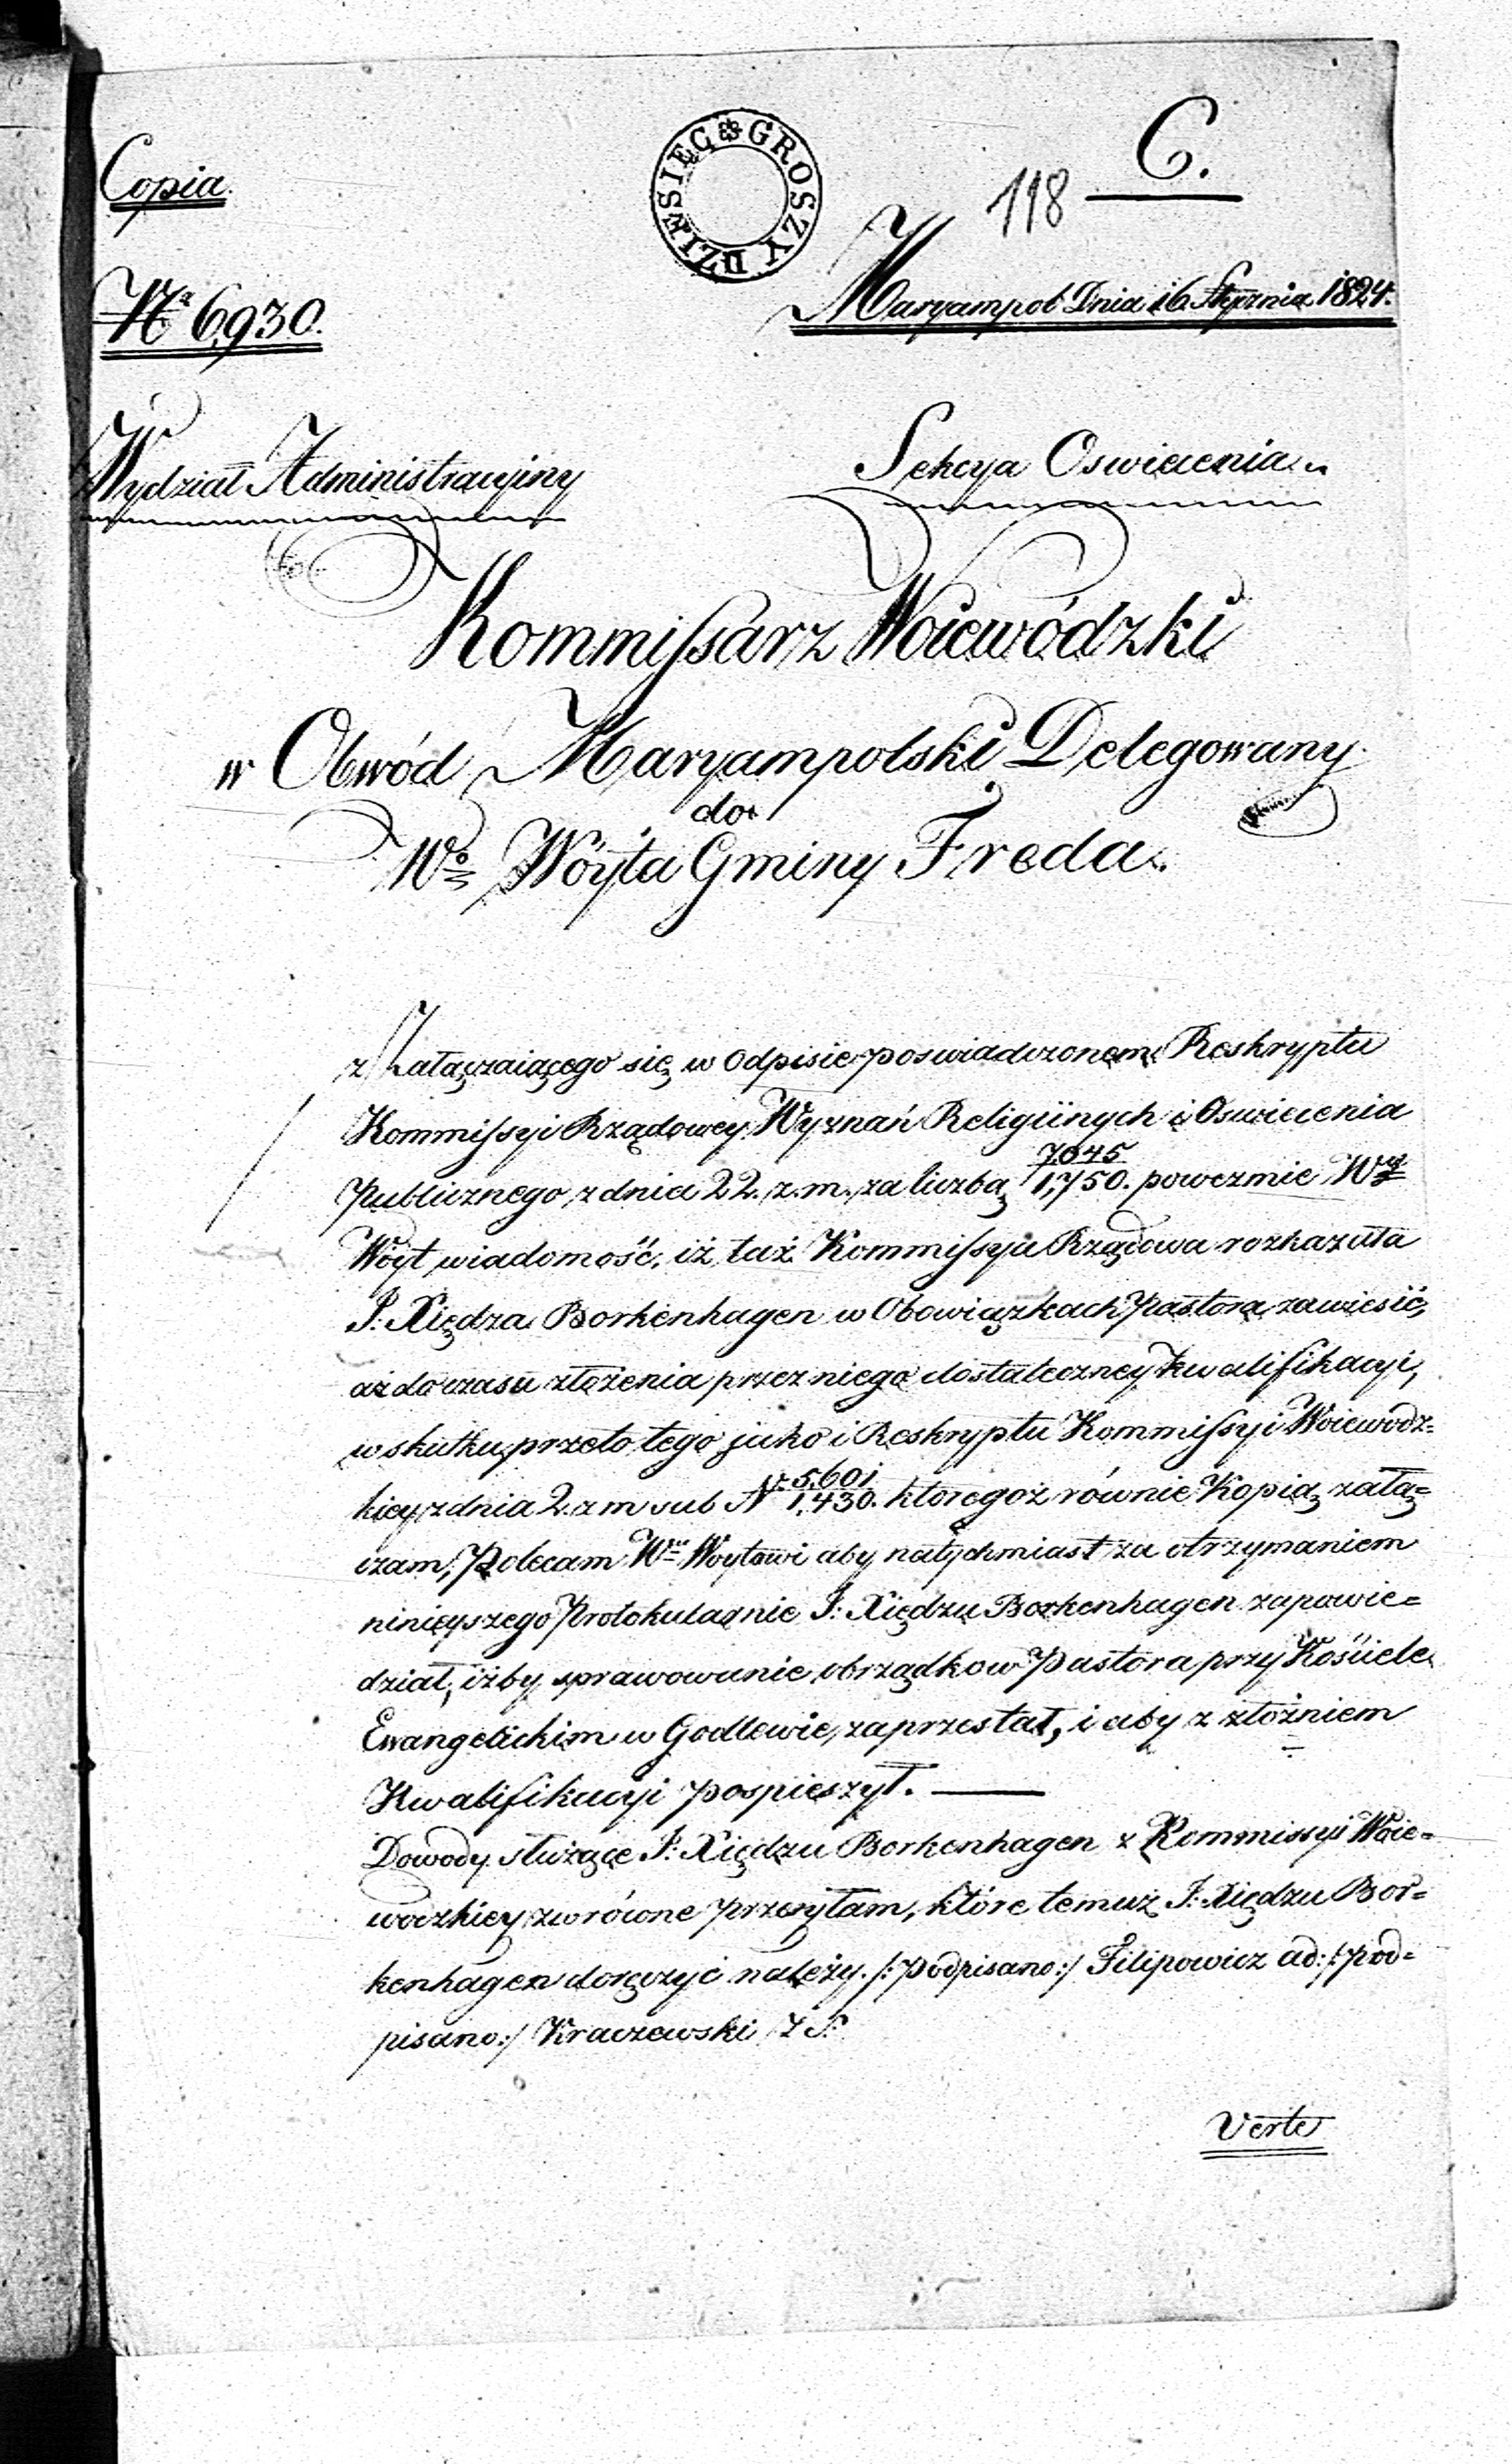 C.
118
Copia.
GROSZY DZIESIĘĆ
Maryampol Dnia 16 Stycznia 1824.
Nr 6,930.
Wydział Administracyiny
Sekcya Oswiecenia
Kommissarz Woiewódzki
w Obwód Maryampolski Delegowany
do
Wo Wóyta Gminy Freda.
z Załączaiącego się w Odpisie poswiadczonem Reskryptu
Kommissyi Rządowey Wyznań Religiinych i Oswiecenia
Publicznego z dnia 22. z. m. za liczbą 7045/1,750. powezmie Wny
Wóyt wiadomość, iż taż Kommissya Rządowa rozkazała
J: Xiędza Borkenhagen w Obowiązkach Pastora zawiesić,
aż do czasu złożenia przez niego dostateczney kwalifikacyi,
w skutku przeto tego jako i Reskryptu Kommissyi Woiewodz=
kiey z dnia 2. z m sub Nr 5,601/1,430. ktoregoż równie Kopią załą=
czam, Polecam Wmu Woytowi aby natychmiast za otrzymaniem
ninieyszego Protokularnie J: Xiędzu Borkenhagen zapowie=
dział, iżby sprawowanie obrządkow Pastora przy Kościele
Ewangelickim w Godlewie zaprzestał, i aby z złożniem
Kwalifikacyi pospieszył. —
Dowody służące J: Xiędzu Borkenhagen z Kommissyi Woie=
wodzkiey zwrócone przesyłam, które temuż J: Xiędzu Bor=
kenhagen doręczyć należy. /: Podpisano :/ Filipowicz ad: /: pod=
pisano :/ Kraczewski Z S.
Verte